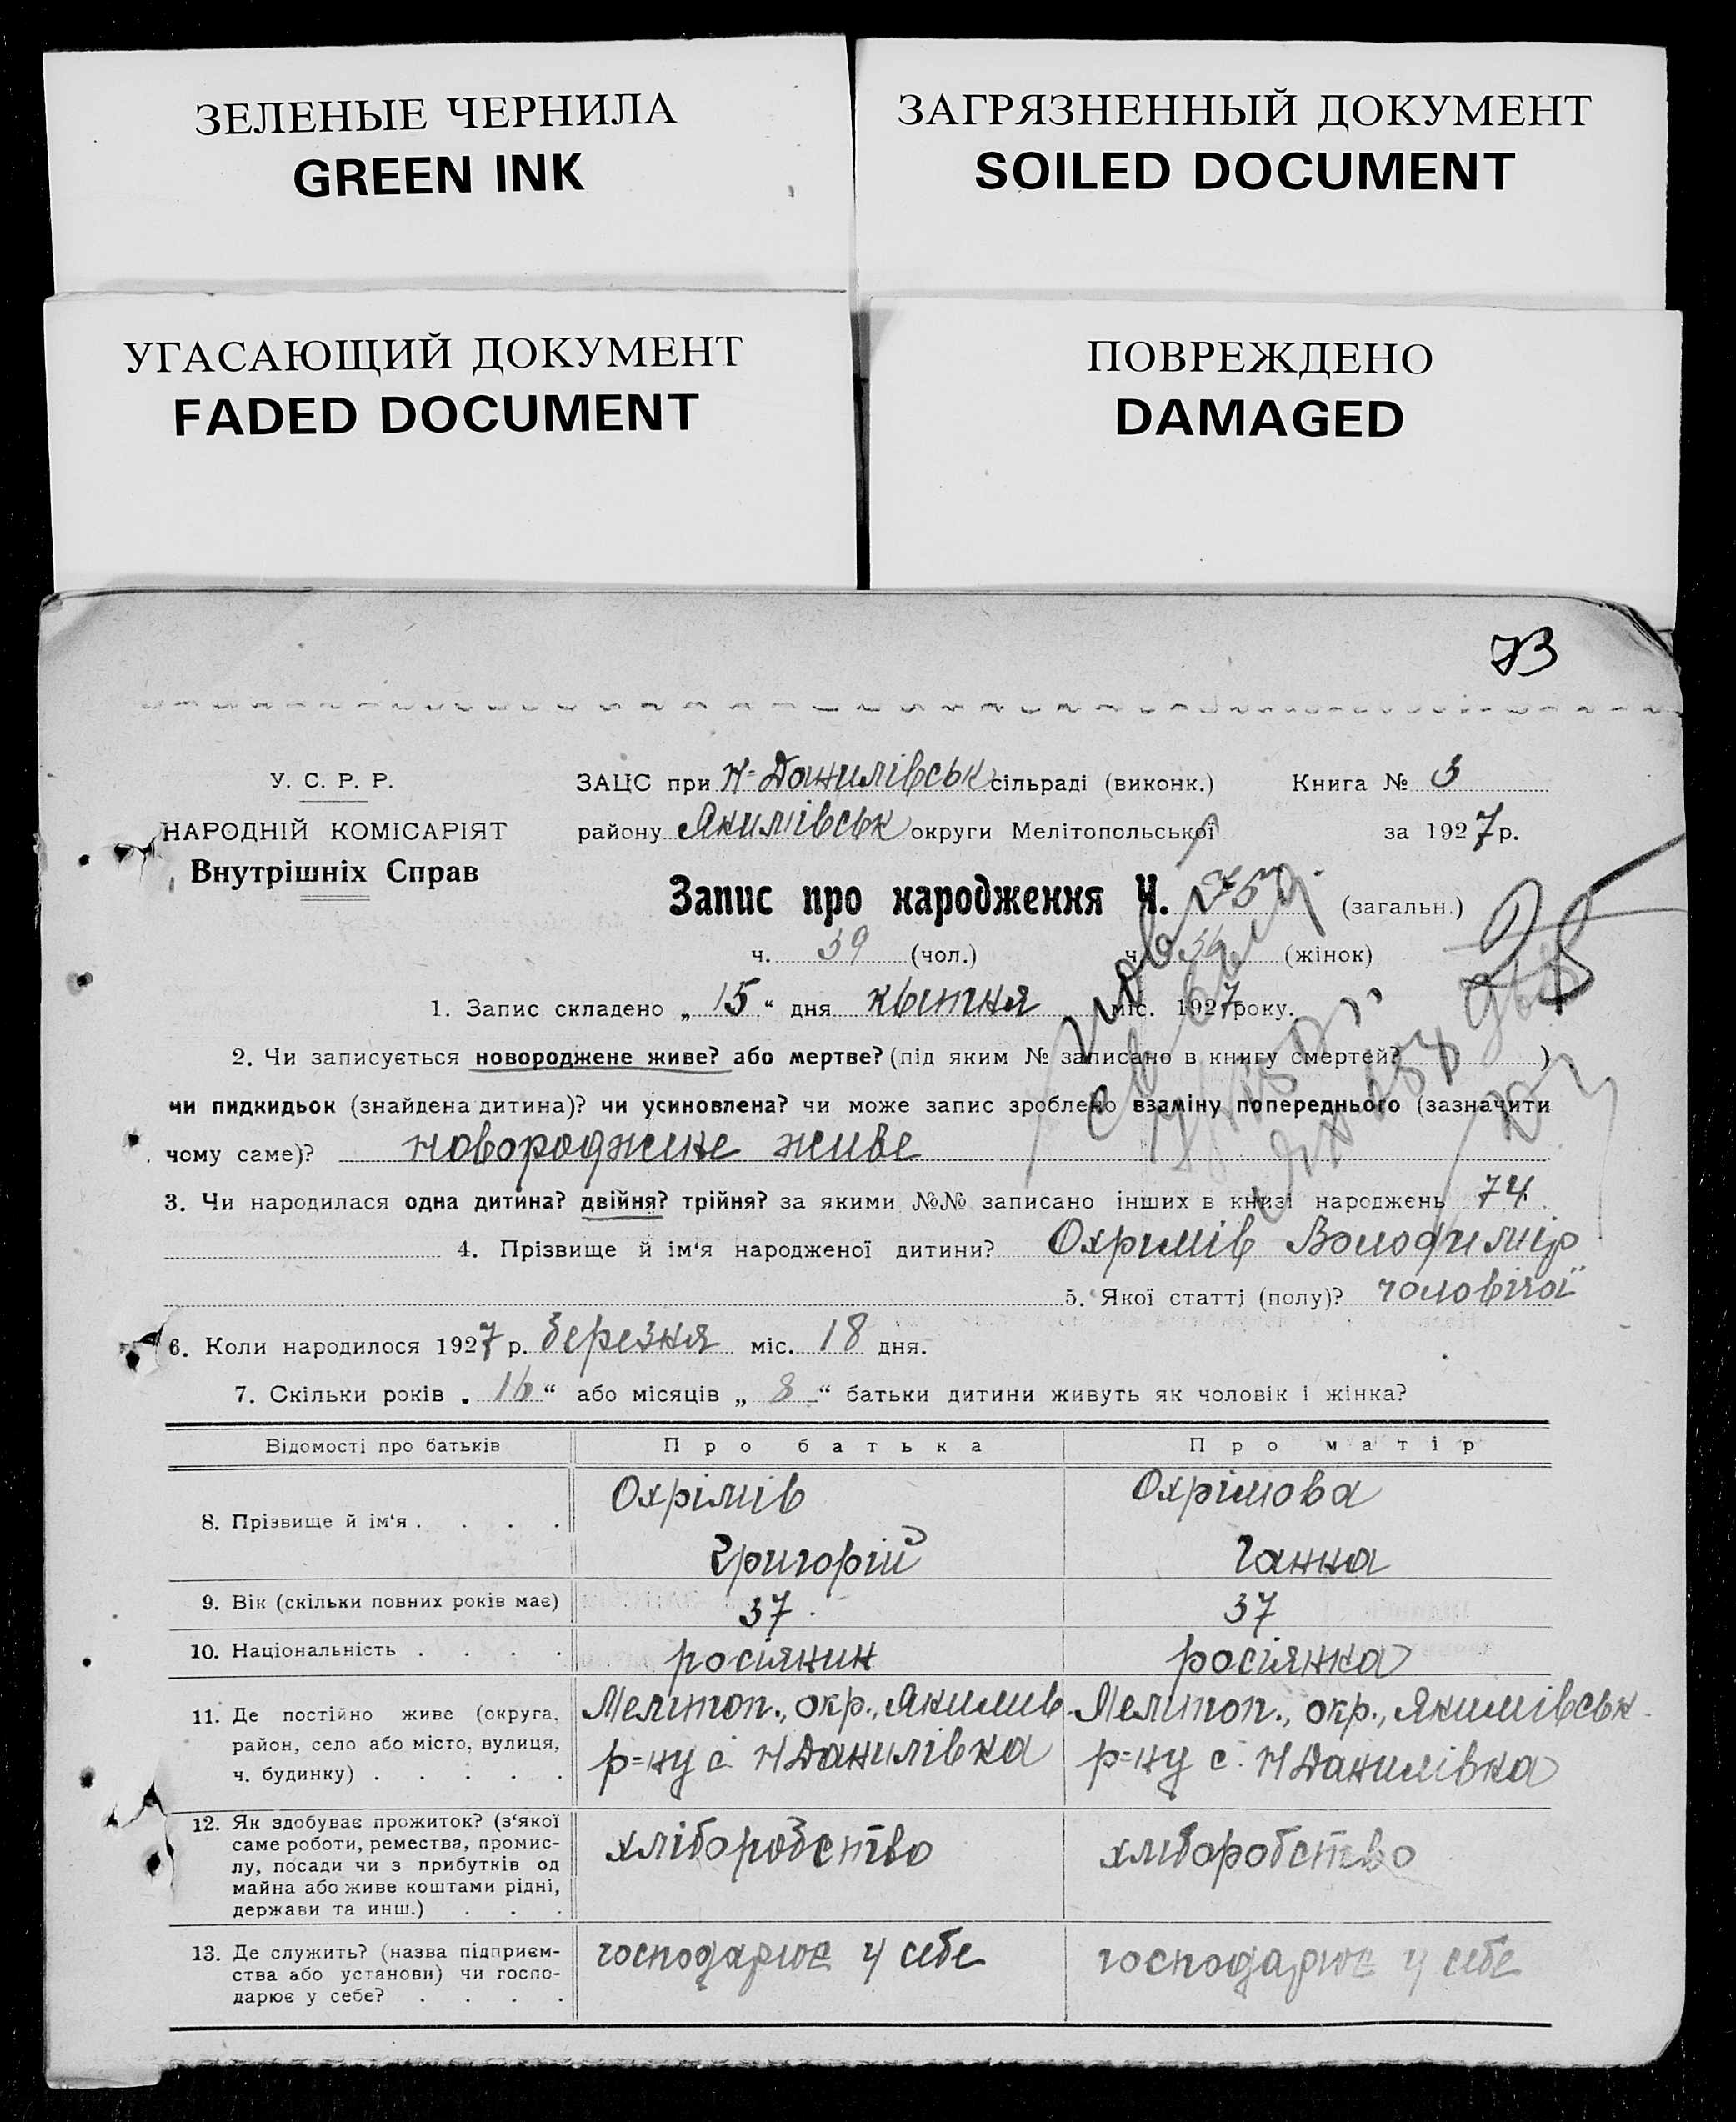 ЗЕЛЕНЫЕ ЧЕРНИЛА
GREEN INK
ЗАГРЯЗНЕННЫЙ ДОКУМЕНТ
SOILED DOCUMENT
УГАСАЮЩИЙ ДОКУМЕНТ
FADED DOCUMENT
ПОВРЕЖДЕНО
DAMAGED
73
У. С. Р. Р.
НАРОДНІЙ КОМІСАРІЯТ
Внутрішніх Справ
ЗАЦС при Н-Данилівськ сільраді (виконк.) Книга № 3
району Якимівськ округи Мелітопольської за 1927 р.
Запис про народження Ч. 75 (загальн.)
ч. 39 (чол.) ч. 36 (жінок)
1. Запис складено „ 15 “ дня квітня міс. 1927 року.
2. Чи записується новороджене живе? або мертве? (під яким № записано в книгу смертей? )
чи пидкидьок (знайдена дитина)? чи усиновлена? чи може запис зроблено взаміну попереднього (зазначити
чому саме)? новороджене живе
3. Чи народилася одна дитина? двійня? трійня? за якими №№ записано інших в книзі народжень 74
4. Прізвище й ім'я народженої дитини? Охримів Володимір
5. Якої статті (полу)? чоловічої
6. Коли народилося 1927 р. березня міс. 18 дня.
7. Скільки років „ 16 “ або місяців „ 8 “ батьки дитини живуть як чоловік і жінка?
Відомості про батьків Про батька Про матір
8. Прізвище й ім'я . . . .
Охрімів
Григорій
Охрімова
Ганна
9. Вік (скільки повних років має) 37 37
10. Національність . . . . росіянин росіянка
11. Де постійно живе (округа,
район, село або місто, вулиця,
ч. будинку) . . . . .
Мелітоп., окр., Якимив
р=ну с. Н Данилівка
Мелітоп., окр., Якимівськ
р=ну с. Н Данилівка
12. Як здобуває прожиток? (з'якої
саме роботи, ремества, промис-
лу, посади чи з прибутків од
майна або живе коштами рідні,
держави та инш.) . . .
хліборобство
хліборобство
13. Де служить? (назва підприєм-
ства або установи) чи госпо-
дарює у себе? . . . .
господарює у себе
господарює у себе